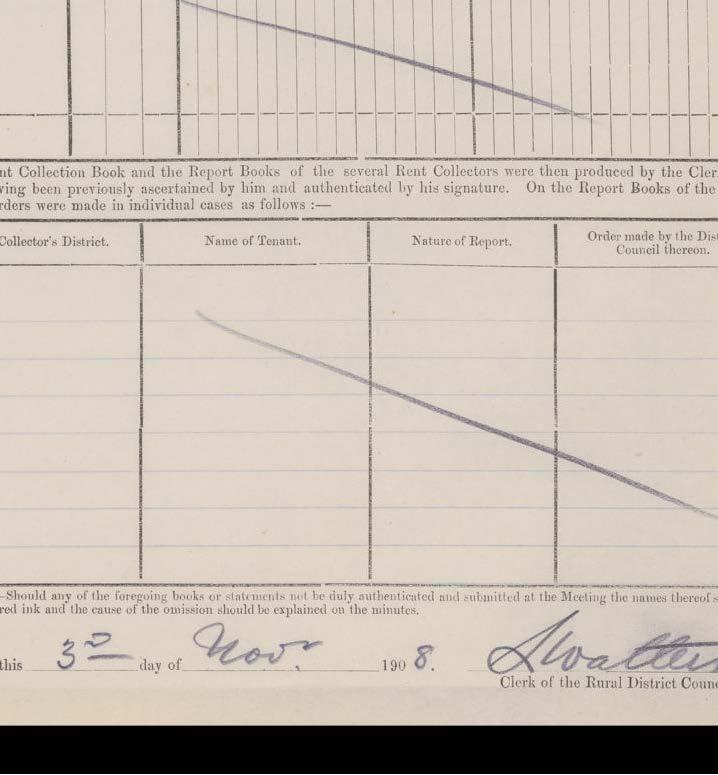 nt Collection Book and the Report Books of the several Rent Collectors were then produced by the Cler
ving been previously ascertained by him and authenticated by his signature. On the Report Books of the
rders were made in individual cases as follows :—
Collector's District. Name of Tenant. Nature of Report. Order made by the Dist
Council thereon.
—Should any of the foregoing books or statements not be duly authenticated and submitted at the Meeting the names thereof s
red ink and the cause of the omission should be explained on the minutes.
this 3rd day of Novr. 190 8.
Clerk of the Rural District Counc